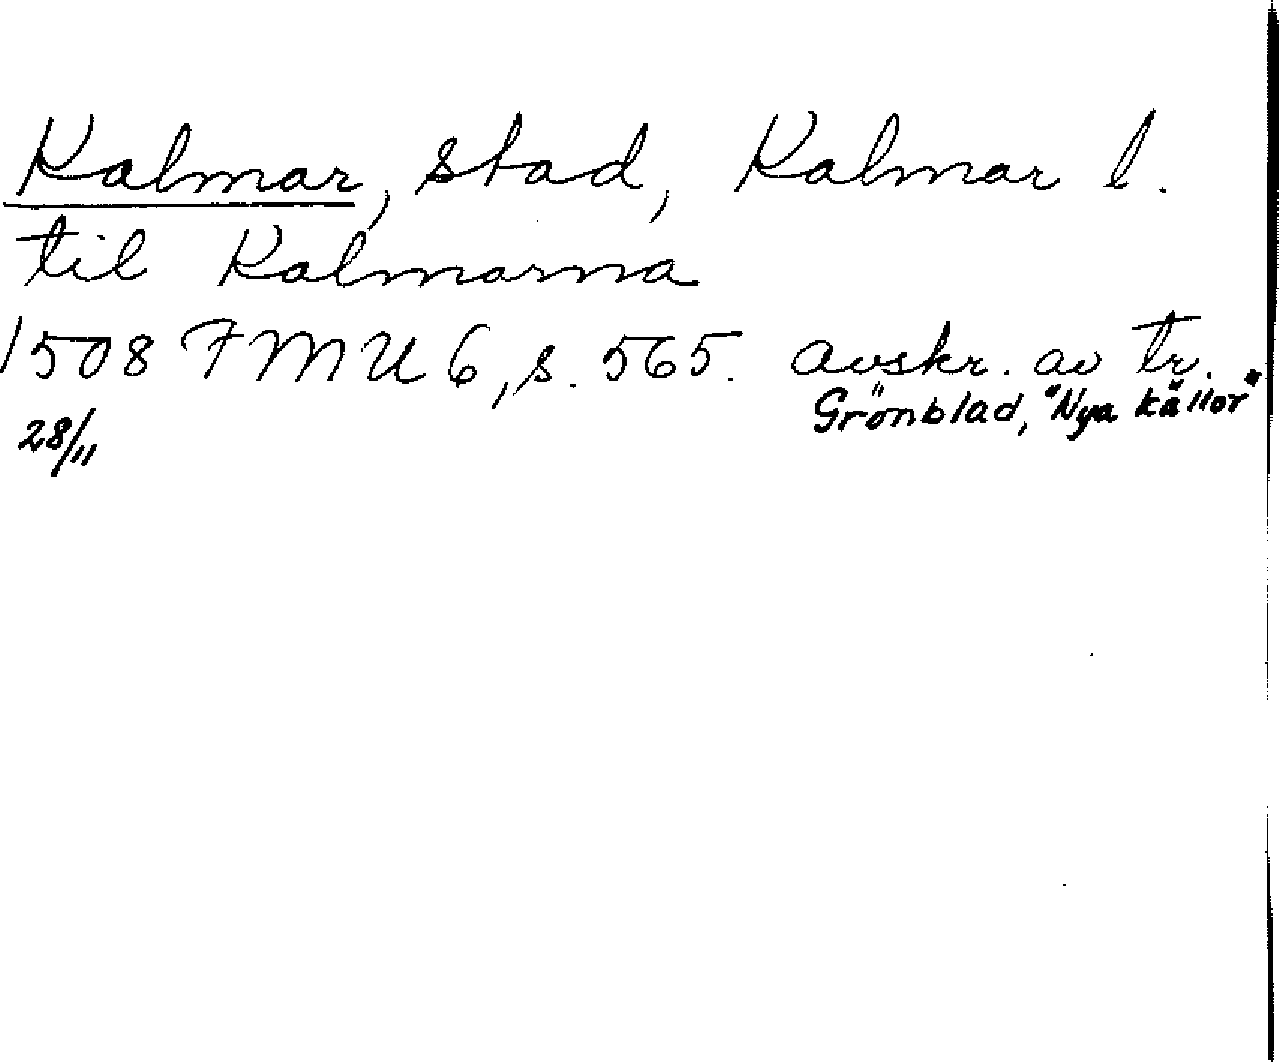 Kalmar, stad, Kalmar l.
til Kalmarna
1508 FMU 6, s. 565. avskr. av tr.
Grönblad, "Nya källor"
28/11